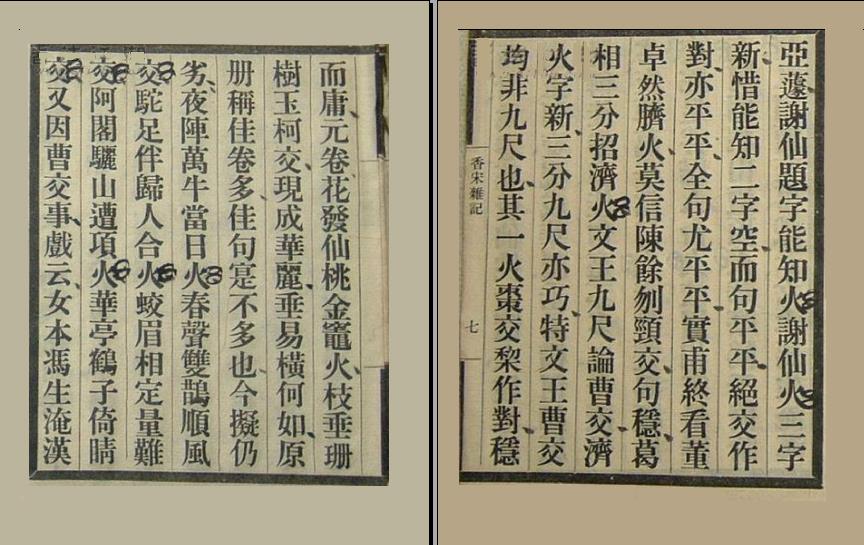 亞蘧謝仙題字能知火謝仙火三字
新惜能知二字空而句平平絕交作
對亦平平全句尤平平實甫終看董
卓然臍火莫信陳餘刎頸交句穩葛
相三分招濟火文王九尺論曹交濟
火字新三分九尺亦巧特文王曹交
均非九尺也其一火棗交棃作對穩
香宋雜記
七
而庸元卷花發仙桃金竈火枝垂珊
樹玉柯交現成華麗垂易橫何如原
册稱佳卷多佳句寔不多也今擬仍
劣夜陣萬牛當日火春聲雙鵲順風
交駝足伴歸人合火蛟眉相定量難
交阿閣驪山遭項火華亭鶴子倚睛
交又因曹交事戲云女本馮生淹漢